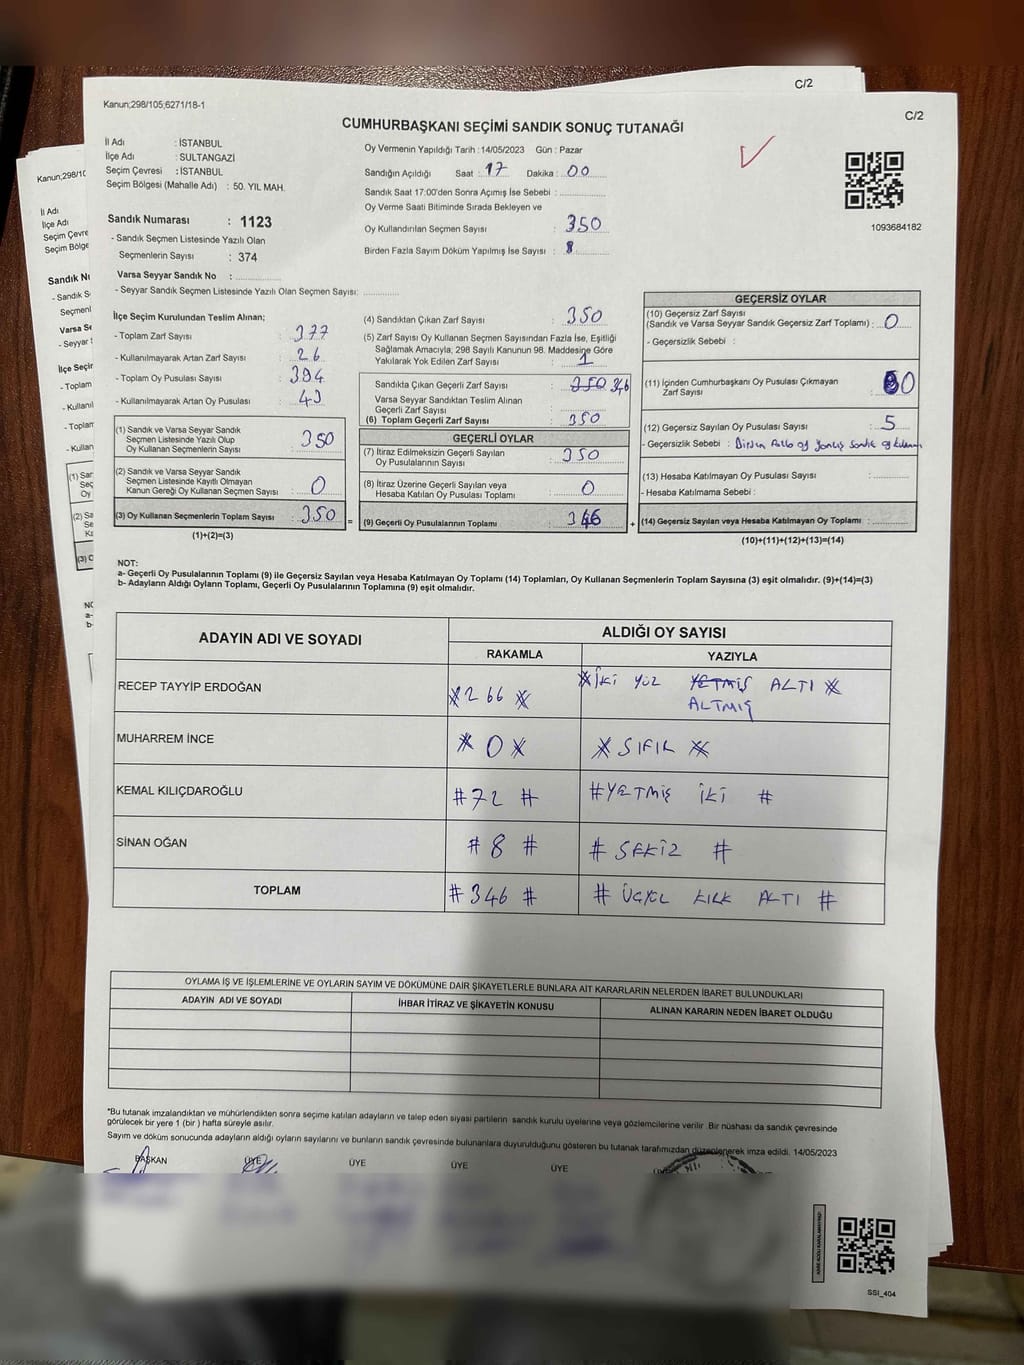 C/2
Kanun;298/105;6271/18-1
C/2
CUMHURBAŞKANI SEÇİMİ SANDIK SONUÇ TUTANAĞI
İl Adı : İSTANBUL
İlçe Adı : SULTANGAZİ
Seçim Çevresi : İSTANBUL
Seçim Bölgesi (Mahalle Adı) : 50. YIL MAH.
Oy Vermenin Yapıldığı Tarih :14/05/2023 Gün : Pazar
Sandığın Açıldığı Saat : 17 Dakika : 00
Sandık Saat 17:00'den Sonra Açımış İse Sebebi :
Oy Verme Saati Bitiminde Sırada Bekleyen ve
Oy Kullandırılan Seçmen Sayısı : 350
Birden Fazla Sayım Döküm Yapılmış İse Sayısı :
1093684182
Sandık Numarası : 1123
- Sandık Seçmen Listesinde Yazılı Olan
Seçmenlerin Sayısı : 374
Varsa Seyyar Sandık No :
- Seyyar Sandık Seçmen Listesinde Yazılı Olan Seçmen Sayısı:
İlçe Seçim Kurulundan Teslim Alınan;
- Toplam Zarf Sayısı : 377
- Kullanılmayarak Artan Zarf Sayısı : 26
- Toplam Oy Pusulası Sayısı : 394
- Kullanılmayarak Artan Oy Pusulası : 43
(1) Sandık ve Varsa Seyyar Sandık
Seçmen Listesinde Yazılı Olup
Oy Kullanan Seçmenlerin Sayısı : 350
(2) Sandık ve Varsa Seyyar Sandık
Seçmen Listesinde Kayıtlı Olmayan
Kanun Gereği Oy Kullanan Seçmen Sayısı : 0
(3) Oy Kullanan Seçmenlerin Toplam Sayısı : 350 =
(1)+(2)=(3)
(4) Sandıktan Çıkan Zarf Sayısı : 350
(5) Zarf Sayısı Oy Kullanan Seçmen Sayısından Fazla İse, Eşitliği
Sağlamak Amacıyla; 298 Sayılı Kanunun 98. Maddesine Göre
Yakılarak Yok Edilen Zarf Sayısı : 1
Sandıkta Çıkan Geçerli Zarf Sayısı : 350 346
Varsa Seyyar Sandıktan Teslim Alınan
Geçerli Zarf Sayısı :
(6) Toplam Geçerli Zarf Sayısı : 350
GEÇERLİ OYLAR
(7) İtiraz Edilmeksizin Geçerli Sayılan
Oy Pusulalarının Sayısı : 350
(8) İtiraz Üzerine Geçerli Sayılan veya
Hesaba Katılan Oy Pusulası Toplamı : 0
(9) Geçerli Oy Pusulalarının Toplamı : 346 +
GEÇERSİZ OYLAR
(10) Geçersiz Zarf Sayısı
(Sandık ve Varsa Seyyar Sandık Geçersiz Zarf Toplamı) : 0
- Geçersizlik Sebebi :
(11) İçinden Cumhurbaşkanı Oy Pusulası Çıkmayan
Zarf Sayısı : 0
(12) Geçersiz Sayılan Oy Pusulası Sayısı : 5
- Geçersizlik Sebebi : Birden Fazla oy yanlış sandık
(13) Hesaba Katılmayan Oy Pusulası Sayısı :
- Hesaba Katılmama Sebebi :
(14) Geçersiz Sayılan veya Hesaba Katılmayan Oy Toplamı :
(10)+(11)+(12)+(13)=(14)
NOT:
a- Geçerli Oy Pusulalarının Toplamı (9) ile Geçersiz Sayılan veya Hesaba Katılmayan Oy Toplamı (14) Toplamları, Oy Kullanan Seçmenlerin Toplam Sayısına (3) eşit olmalıdır. (9)+(14)=(3)
b- Adayların Aldığı Oyların Toplamı, Geçerli Oy Pusulalarının Toplamına (9) eşit olmalıdır.
ADAYIN ADI VE SOYADI ALDIĞI OY SAYISI
RAKAMLA YAZIYLA
RECEP TAYYİP ERDOĞAN 266 İKİ YÜZ YETMİŞ ALTI
ALTMIŞ
MUHARREM İNCE 0 SIFIR
KEMAL KILIÇDAROĞLU #72 # #YETMİŞ İKİ #
SİNAN OĞAN # 8 # # SEKİZ #
TOPLAM #346 # # ÜÇYÜZ KIRK ALTI #
OYLAMA İŞ VE İŞLEMLERİNE VE OYLARIN SAYIM VE DÖKÜMÜNE DAİR ŞİKAYETLERLE BUNLARA AİT KARARLARIN NELERDEN İBARET BULUNDUKLARI
ADAYIN ADI VE SOYADI İHBAR İTİRAZ VE ŞİKAYETİN KONUSU ALINAN KARARIN NEDEN İBARET OLDUĞU
*Bu tutanak imzalandıktan ve mühürlendikten sonra seçime katılan adayların ve talep eden siyasi partilerin sandık kurulu üyelerine veya gözlemcilerine verilir .Bir nüshası da sandık çevresinde
görülecek bir yere 1 (bir ) hafta süreyle asılır.
Sayım ve döküm sonucunda adayların aldığı oyların sayılarını ve bunların sandık çevresinde bulunanlara duyurulduğunu gösteren bu tutanak tarafımızdan düzenlenerek imza edildi. 14/05/2023
BAŞKAN ÜYE ÜYE ÜYE ÜYE
SSI_404